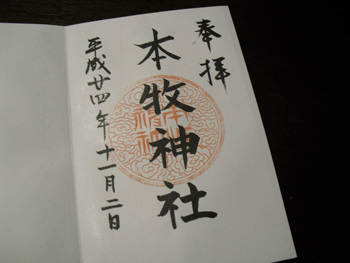 奉拝
本牧神社
平成廿四年十一月二日